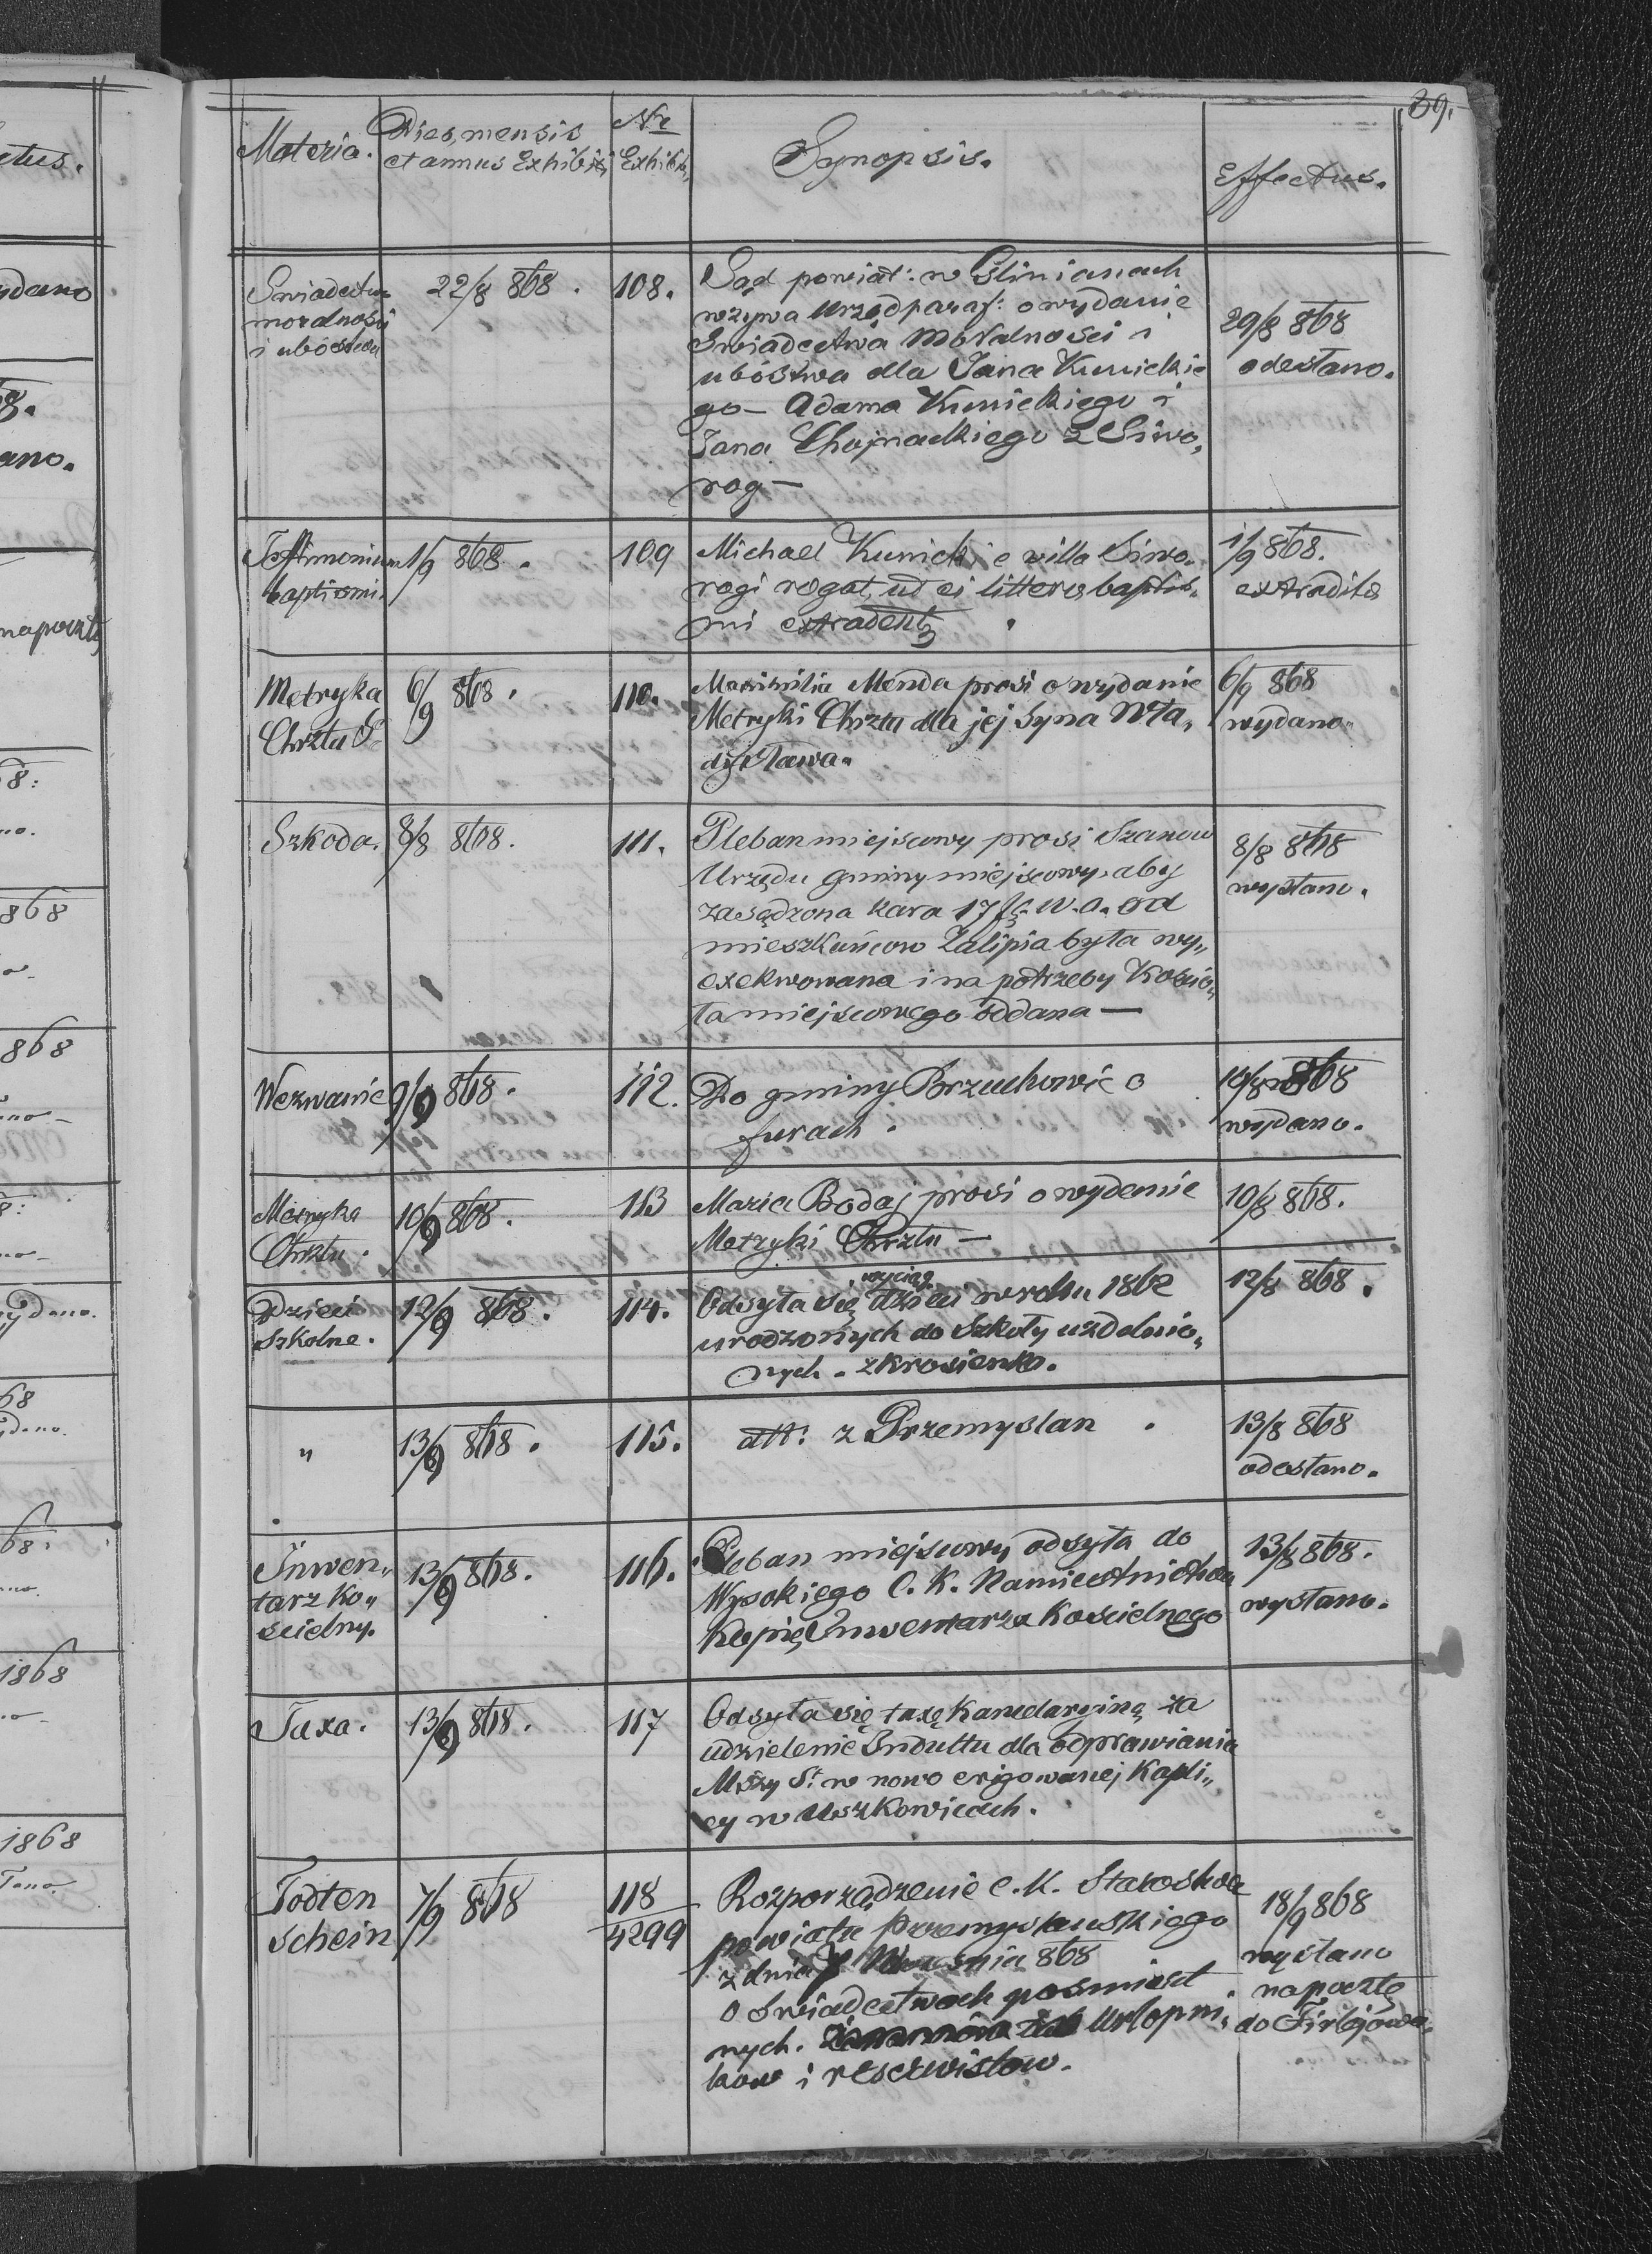 39.
Materia.
Dies, mensis
et annus Exhibiti
Nr
Exhibit.
Synopsis.
Effectus.
Swiadectwo
moralności
i ubóstwa
22/8 868.
108.
Sąd powiat: w Glinianach
wzywa Urząd paraf: o wydanie
Swiadectwa moralności i
ubóstwa dla Jana Kunickie
go — Adama Kunickiego i
Jana Chojnackiego z Siwo„
rog —
29/8 868
odesłano.
Testimonium
baptismi.
1/9 868.
109
Michael Kunicki e villa Siwo„
rogi rogat, ut ei littera baptis„
mi extradentur
1/9 868.
extradita
Metryka
Chrztu S
6/9 868.
110.
Maximilia Menda prosi o wydanie
Metryki Chrztu dla jej Syna Wła„
dysława.
6/9 868
wydano
Szkoda.
8/8 868.
111.
Pleban miejscowy prosi Szanow
Urzędu gminy miejscowy, aby
zasądzona kara 17 w.a. od
mieszkańcow Zalipia była wy„
exekwowana i na potrzeby Kościo„
ła miejscowego oddana —
8/8 868
wysłano.
Wezwanie
9/9 868.
112.
Do gminy Brzuchowic o
furach.
10/8 868
wydano.
Metryka
Chrztu.
10/9 868.
113
Maria Bodaj prosi o wydanie
Metryki Chrztu —
10/8 868.
Dzieci
szkolne.
12/9 868.
114.
wyciąg
Odsyła się dzieci w roku 1862
urodzonych do Szkoły uzdolnio„
nych. z Krosienka.
12/8 868.
"
13/9 868.
115.
dtt: z Przemyslan.
13/8 868
odesłano.
Inwen„
tarz ko„
scielny.
13/9 868.
116.
Pleban miejscowy odsyła do
Wysokiego C. K. Namiestnictwa
Kopię Inwentarza Koscielnego
13/8 868.
wysłano.
Taxa.
13/9 868.
117
Odsyła się taxę Kancelaryiną za
udzielenie Indultu dla odprawiania
Mszy St. w nowo erigowanej Kapli„
cy w Uszkowicach.
Todten
schein
7/9 868
118
4299
Rozporządzenie c. K. Starostwa
powiatu Przemyslanskiego
z dnia 7 Wrzesnia 868
o Swiadectwach posmiert
nych. Urlopni„
kow i reserwistow.
18/9 868
wysłano
na pocztę
do Firlejowa.